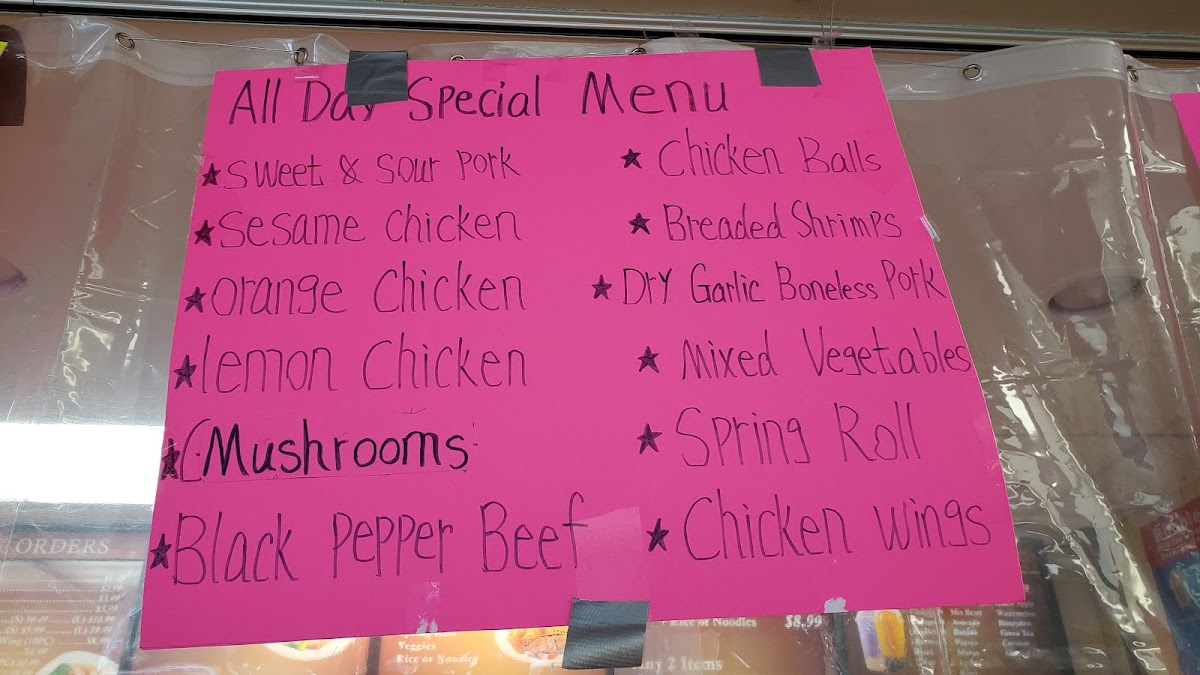 All Day Special Menu
★ sweet & sour pork
★ sesame chicken
★ orange chicken
★ lemon chicken
★ Mushrooms
★ Black pepper Beef
★ Chicken Balls
★ Breaded Shrimps
★ Dry Garlic Boneless Pork
★ Mixed Vegetables
★ Spring Roll
★ Chicken wings
ORDERS
Veggies
Rice or Noodles
Rice or Noodles $8.99
Any 2 Items